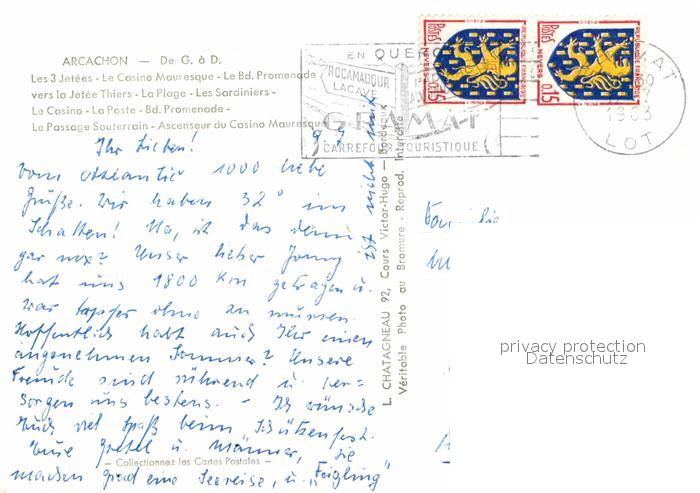 ARCACHON — De G. à D.
Les 3 Jetées - Le Casino Mauresque - Le Bd. Promenade
vers la Jetée Thiers - La Plage - Les Sardiniers -
Le Casino - La Poste - Bd. Promenade -
Le Passage Souterrain - Ascenseur du Casino Mauresque
EN QUERCY
ROCAMADOUR
LACAVE
GRAMAT
CARREFOUR TOURISTIQUE
GRAMAT
1963
LOT
Postes
NEVERS
0,15
REPUBLIQUE FRANÇAISE
Postes
NEVERS
0,15
REPUBLIQUE FRANÇAISE
Ihr Lieben!
Vom Atlantic 1000 liebe
Grüße. Wir haben 32° im
Schatten! Na, ist das denn
gar nix? Unser lieber Jonny
hat uns 1800 km getragen u.
war tapfer ohne zu murren.
Hoffentlich habt auch Ihr einen
angenehmen Sommer? Unsere
Freude sind rührend u. ver-
sorgen uns bestens. - Ich wünsche
Euch viel Spaß beim Schützenfest.
Eure Gretel u. Männer, die
machen grad eine Seereise, u. „Feigling"
ist nicht mit
— Collectionnez les Cartes Postales —
L. CHATAGNEAU 92, Cours Victor-Hugo — Bordeaux
Véritable Photo au Bromure - Reprod. Interdite
Familie
privacy protection
Datenschutz